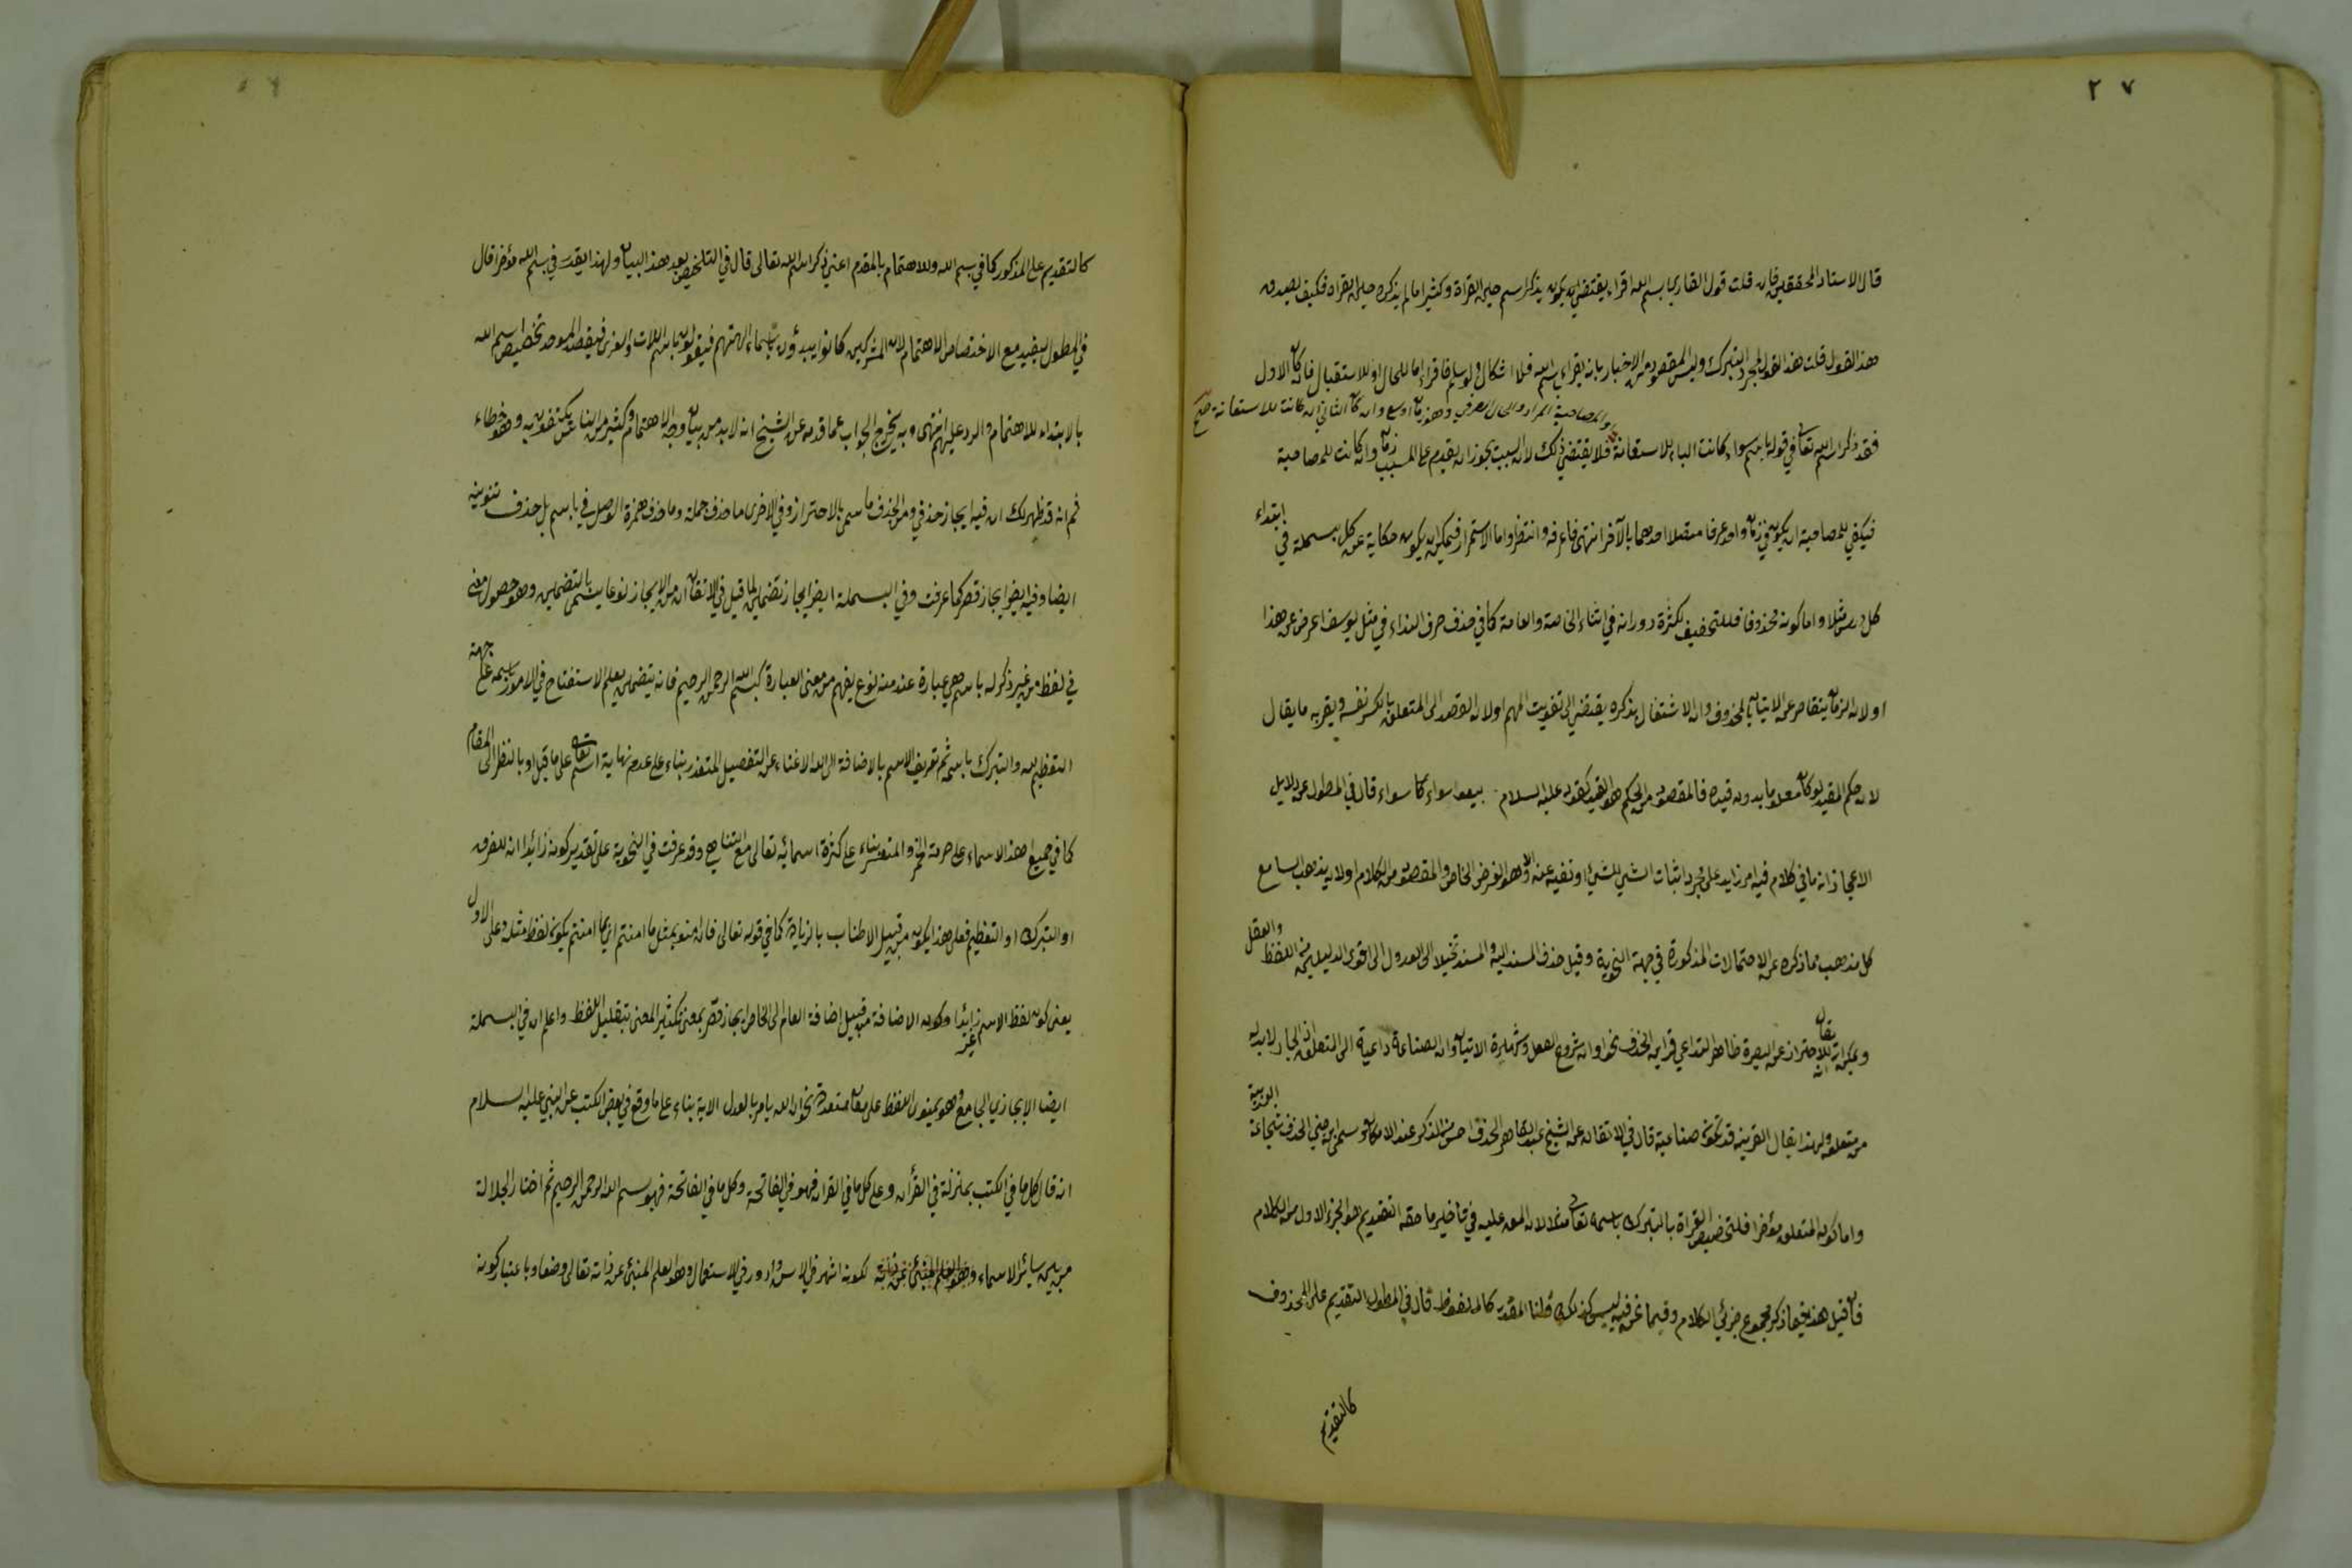 ٢٧
قال الاستاد المحققين فان قلت قول القاري بسم الله اقراء يقتضي ان يكون يذكر اسم حين القراة وكثيرا ما لم يذكره حين القراه فكيف يصدق
هذا القول قلت هذا القول لمجرد التبرك وليس المقصود من الاخبار بانه يقراء بسم الله فلا اشكال ولو سلم فاقراء اما للحال او للاستقبال فان كان الاول
والمصاحبة المراد والحال العرفي وهو زمان اوسع وان كان الثاني ان كانت للاستعانة صح
فقد ذكر اسم الله تعا في قوله باسم سواء كانت الباء للاستعانة فلا يقتضي ذلك لان السبب يجوز ان يقدم على المسبب زمانا وان كانت للمصاحبة
فيكفي للمصاحبة ان يكون في زمان واحد عرفا متصلا احدهما بالآخر انتهى فاعرفه وانتظر واما الاستمرار فيمكن ان يكون حكاية عن كل بسملة في ابتداء
كل درس مثلا واما كونه محذوفا فللتخفيف لكثرة دورانه في اثناء الخاصة والعامة كما في حذف حرف النداء في مثل يوسف اعرض عن هذا
او لان الزمان يتقاصر عن الاتيان بالمحذوف وان الاشتغال بذكره يقتضي الى تفويت المهم او لان القصد الى المتعلق بالكسر نفسه ويقربه ما يقال
لان حكم المقيد لو كان معلوما بدون قيده فالمقصود من الحكم هو القيد كقوله عليه السلام بيعوا سواء كان سواء قال في المطول عن دلايل
الاعجاز انه ما في كلام فيه امر زايد على مجرد اثبات الشي للشيئ او نفيه عنه الا وهو الغرض الخاص والمقصود من الكلام او لان يذهب السامع
كل مذهب مما ذكره عن الاحتمالات المذكورة في جهة النحوية وقيل حذف المسند اليه والمسند تخيلا الى العدول الى اقوى الدليلين من اللفظ والعقل
ويمكن ان يقال انه للاحتراز عن العبث ظاهرا لتداعي قراين الحذف نحو اوان شروع الفعل ومباشرة الاتيان وان الصناعة داعية الى المتعلق اذ الجار لا بد له
من متعلق ولهذا يقال القرينه قد تكون صناعية قال في الاتقان عن الشيخ عبد القاهر الحذف احسن من الذكر عند الامكان وسمى ابن جني الحذف شجاعة العربية
واما كونه المتعلق مؤخرا فلتخصيص القراة بالتبرك باسمه تعا مثلا لان المعه عليه في تاخير ما حقه التقديم هو الجزء الاول من الكلام
فان قيل هذا فيما ذكر مجموع جزئي الكلام وفيما نحن فيه ليس كذلك قلنا المقدر كالملفوظ قال في المطول التقديم على المحذوف
كالتقديم
كالتقديم على المذكور كما في بسم الله وللاهتمام بالمقدم اعني ذكر اسم الله تعالى قال في التلخيص بعد هذا البيان ولهذا يقدر في بسم الله مؤخرا قال
في المطول ليفيد مع الاختصاص الاهتمام لان المشركين كانوا يبدؤن باسماء الهتهم فيقولون باسم اللات والعزى فيقصد الموحد تخصيص اسم الله
بالابتداء للاهتمام والرد عليهم انتهى وبه يخرج الجواب عما قدمه عن الشيخ انه لا بد من بيان وجه الاهتمام وكثير من الناس يكتفون به وهو خطاء
ثم انه قد ظهر لك ان فيه ايجاز حذفي ومن الحذف ما سمى بالاحتراز وفي الاخرى ما حذف جملة وما حذف همزة الوصل في باسم بل حذف تنوينه
ايضا وفيه ايضا ايجاز قصر كما عرفت وفي البسملة ايضا ايجاز تضمين لما قيل في الاتقان ان من الايجاز نوعا يسمى بالتضمين وهو حصول معنى
في لفظ من غير ذكر له باسم هي عبارة عنه منه نوع يفهم من معنى العبارة كبسم الله الرحمن الرحيم فانه يتضمن تعليم الاستفتاح في الامور باسمه على جهة
التعظيم لله والتبرك باسمه ثم تعريف الاسم بالاضافة الى الله لاغناء عن التفصيل المتعذر بناء على عدم نهاية اسم تعا على ما قيل او بالنظر الى المقام
كما في جميع اهذا الاسماء على حرمة الخ والمتعسر بناء على كثرة اسمائه تعالى مع التناهي وقد عرفت في النحوية على تقدير كونه زائدا انه للفرق
او التبرك او التعظيم فعلى هذا يكون من قبيل الاطناب بالزيادة كما في قوله تعالى فان امنوا بمثل ما امنتم اي بما امنتم يكون لفظ مثله وعلى الاول
يعني كون لفظ الاسم غير زائدا وكون الاضافة من قبيل اضافة العام الى الخاص ايجاز قصر بمعنى تكثير المعنى بتقليل اللفظ واعلم ان في البسملة
ايضا الايجاز الجامع وهو يحتوي اللفظ على معان متعددة نحو ان الله يامر بالعدل الاية بناء على ما وقع في بعض الكتب عن النبي عليه السلام
انه قال كل ما في الكتب بمنزلة في القرآن وعلى كل ما في القران فهو في الفاتحة وكل ما في الفاتحة فهو بسم الله الرحمن الرحيم ثم اختار الجلالة
من بين سائر الاسماء وهو العلم المنبئ عن ذاته لكونه اشهر في الاسن وادور في الاستعمال وهو العلم المنبئ عن ذاته تعالى وضعا وباعتبار كونه